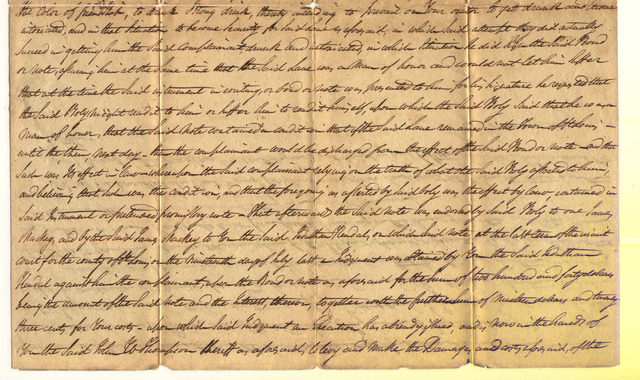 the color of friendship, to drink Strong drink, thereby intending to prevail on Your orator to get drunk and become
intoxicated, and in that Situation to become Security for Said Lane as aforesaid, in which Said attempt they did actually
Succeed in getting him the Said Complainant drunk and intoxicated, in which Situation he did Sign the Said Bond
or Note, assuring him at the Same time that the Said Lane was a Man of honor and would not let him Suffer
that at the time the Said instrument in writing, or Bond or note was presented to him for his Signature he requested that
the Said Roly might read it to him or Suffer him to read it himself, upon which the Said Roly Said that he was a
Man of honor, that the Said Note contained a condition that if the Said Lane remained in the Town of
until the then Next day - then the complainant would be discharged from the effect of the Said Bond or note - and that
Such was its effect - whereupon the Said complainant relying on the truth of what the Said Roly asserted to him,
and believing that Such was the condition, and that the foregoing as asserted by Said Roly was the effect by law, contained in
Said Instrument or pretended promissory note - That afterwards the Said Note was endorsed by Said Roly to one James
Mackey, and by the Said James Mackey to You the Said Kendal, on which Said note at the last term of the circuit
court for the county of on the Nineteenth day of July last a Judgment was obtained by You the Said
Kendal against him the complainant upon the Bond or note as aforesaid for the Sum of two hundred and forty dollars
being the amount of the Said note and the Interest thereon, together with the further Sum of Nineteen dollars and twenty
three cents for Your costs - upon which Said Judgment an Execution has already issued, and is Now in the hands of
You the Said John W Thompson Sheriff as aforesaid, to levy and Make the Damages and costs aforesaid, of the